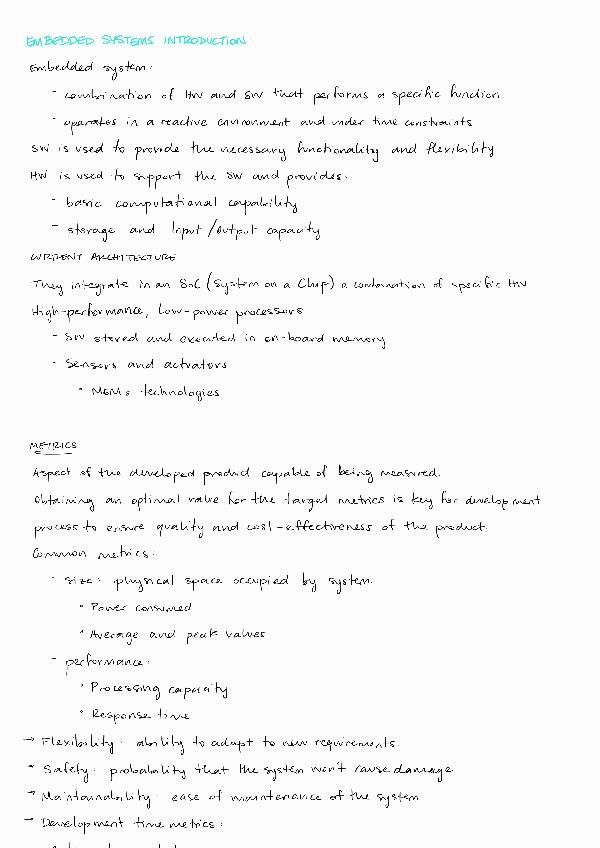 EMBEDDED SYSTEMS INTRODUCTION
Embedded system:
- combination of HW and SW that performs a specific function.
- operates in a reactive environment and under time constraints
SW is used to provide the necessary functionality and flexibility
HW is used to support the SW and provides:
- basic computational capability
- storage and Input/Output capacity
CURRENT ARCHITECTURE
They integrate in an SoC (System on a Chip) a combination of specific HW
High-performance, low-power processors
- SW stored and executed in on-board memory
- Sensors and actuators
• MEMs technologies
METRICS
Aspect of the developed product capable of being measured.
Obtaining an optimal value for the target metrics is key for development
process to ensure quality and cost-effectiveness of the product.
Common metrics:
- size: physical space occupied by system.
• Power consumed
• Average and peak values
- performance:
• Processing capacity
• Response time
→ Flexibility: ability to adapt to new requirements.
→ Safety: probability that the system won't cause damage
→ Maintainability: ease of maintenance of the system
→ Development time metrics: